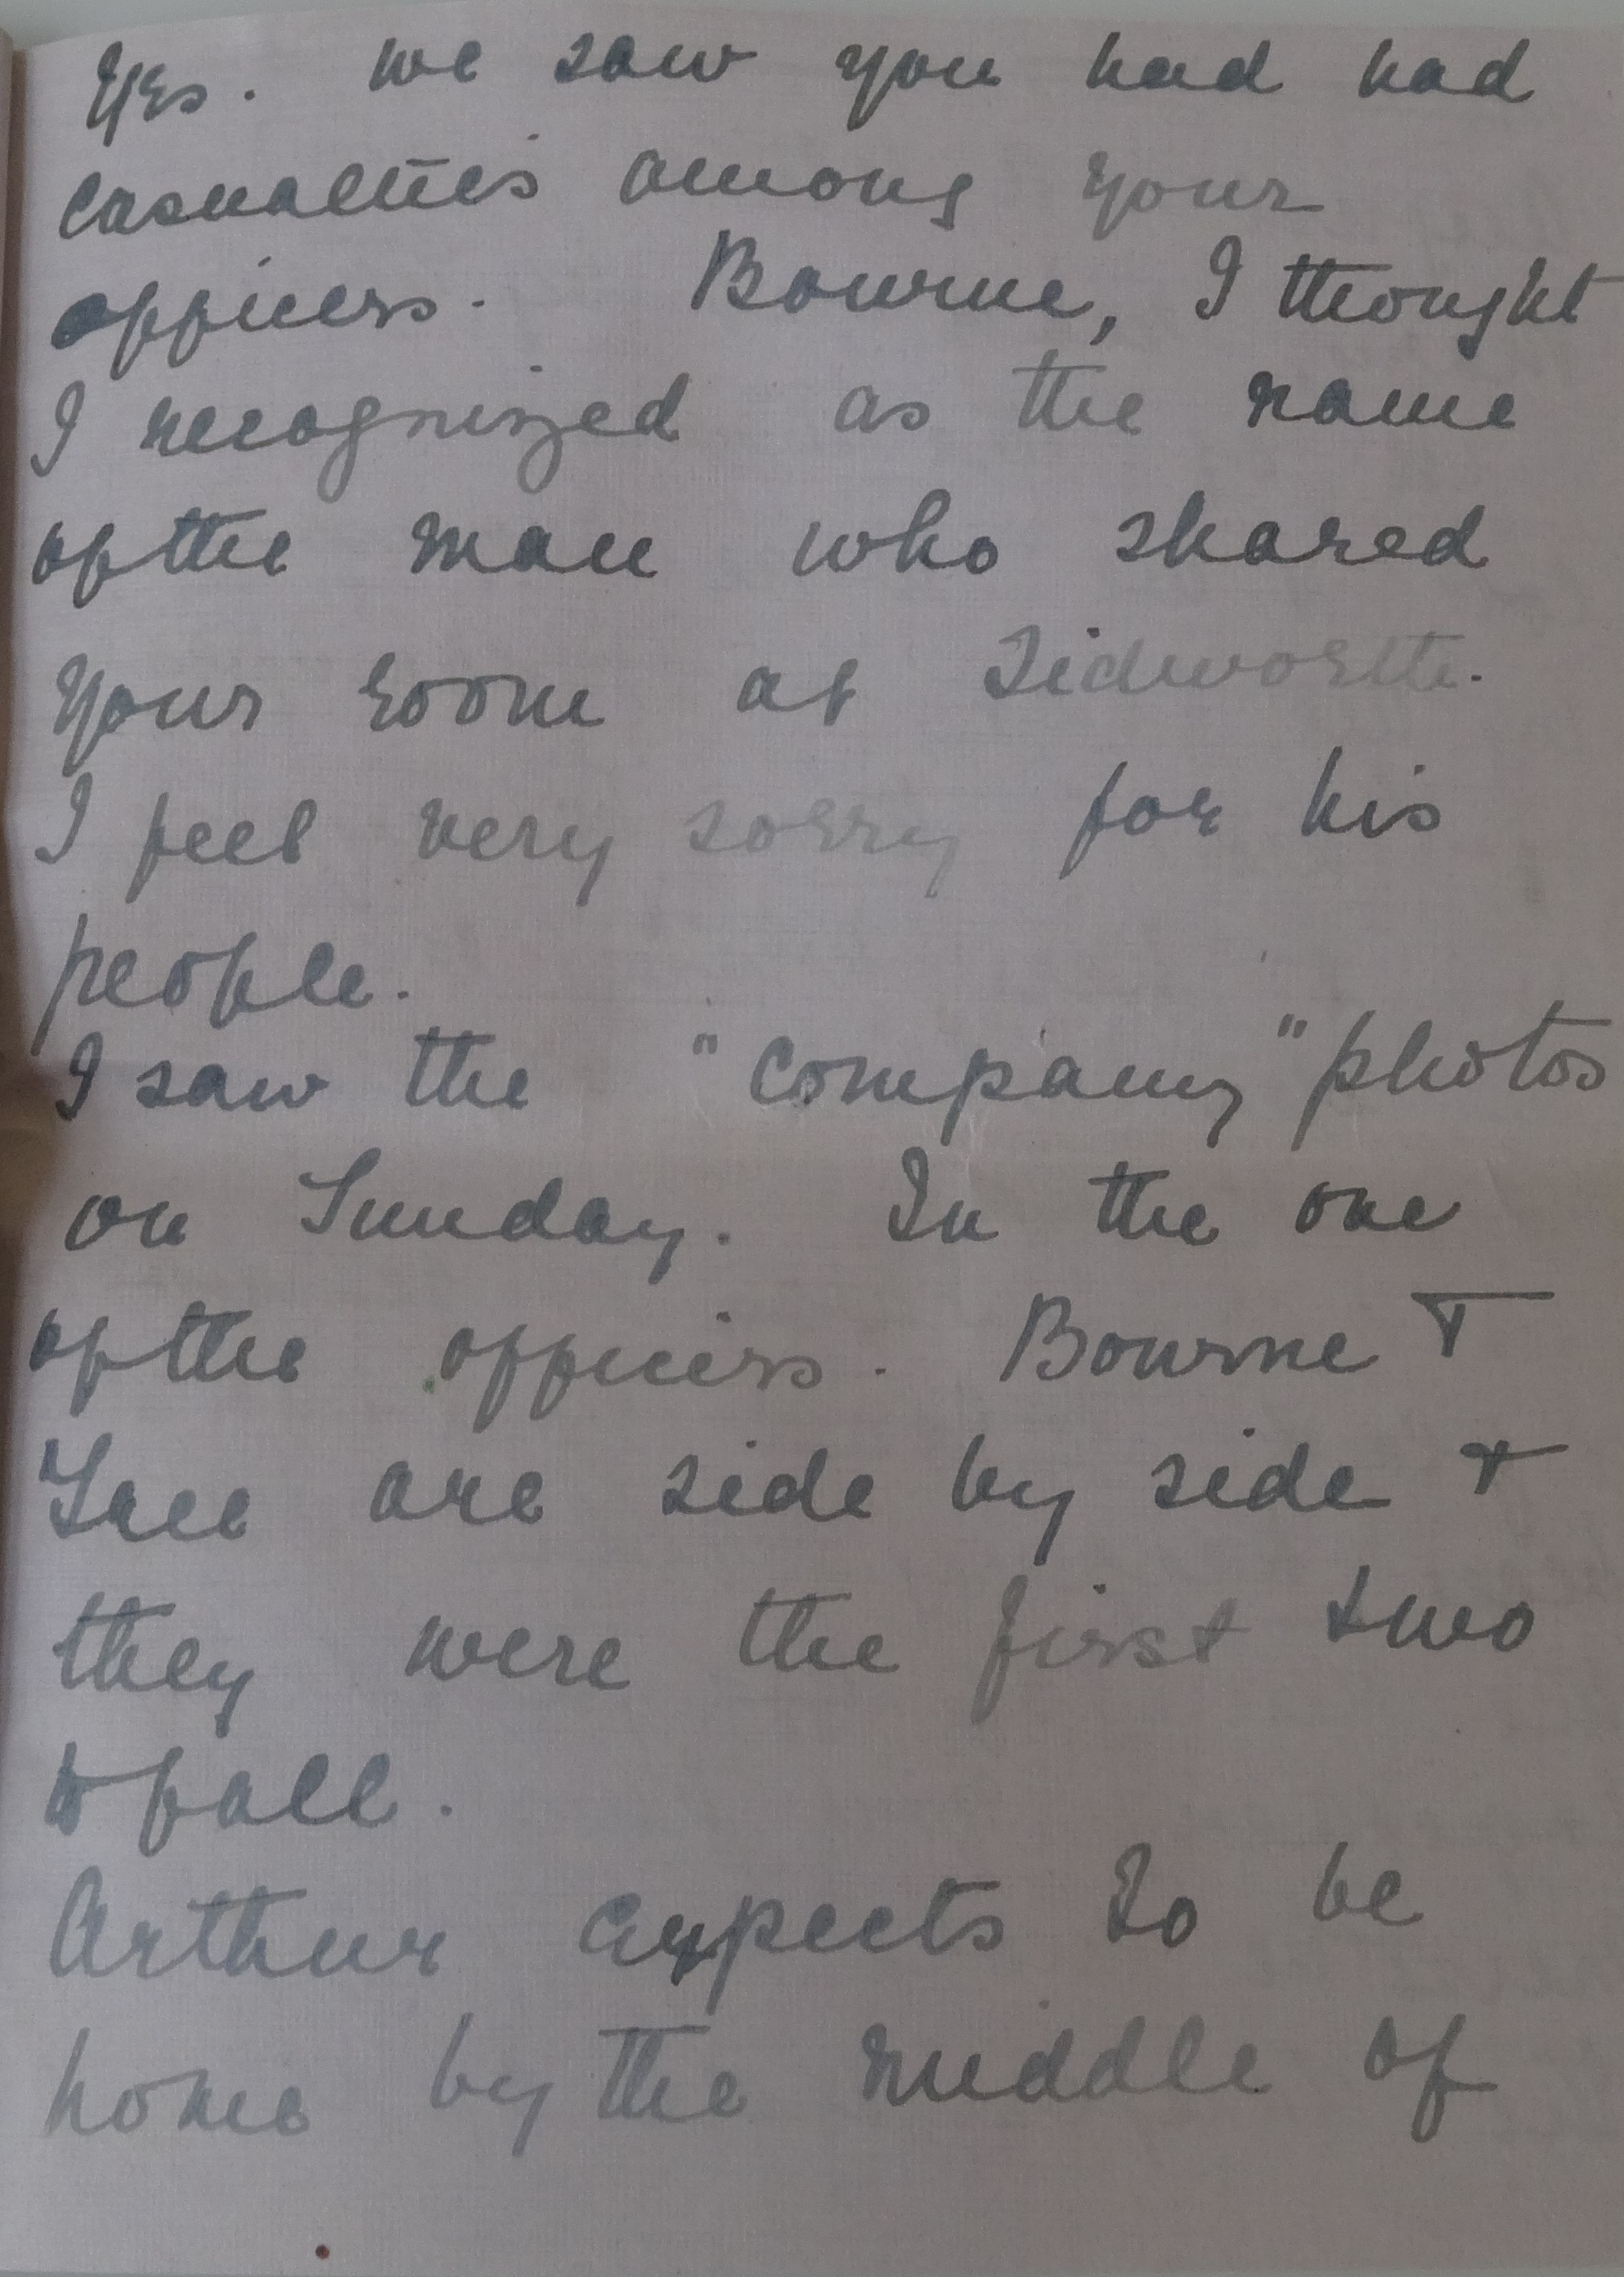 Yes. we saw you had had
casualties among your
officers. Bourne, I thought
I recognized as the name
of the man who shared
your room at Tidworth.
I feel very sorry for his
people.
I saw the "Company" photos
on Sunday. In the one
of the officers. Bourne &
are side by side &
they were the first two
to fall.
Arthur expects to be
home by the middle of